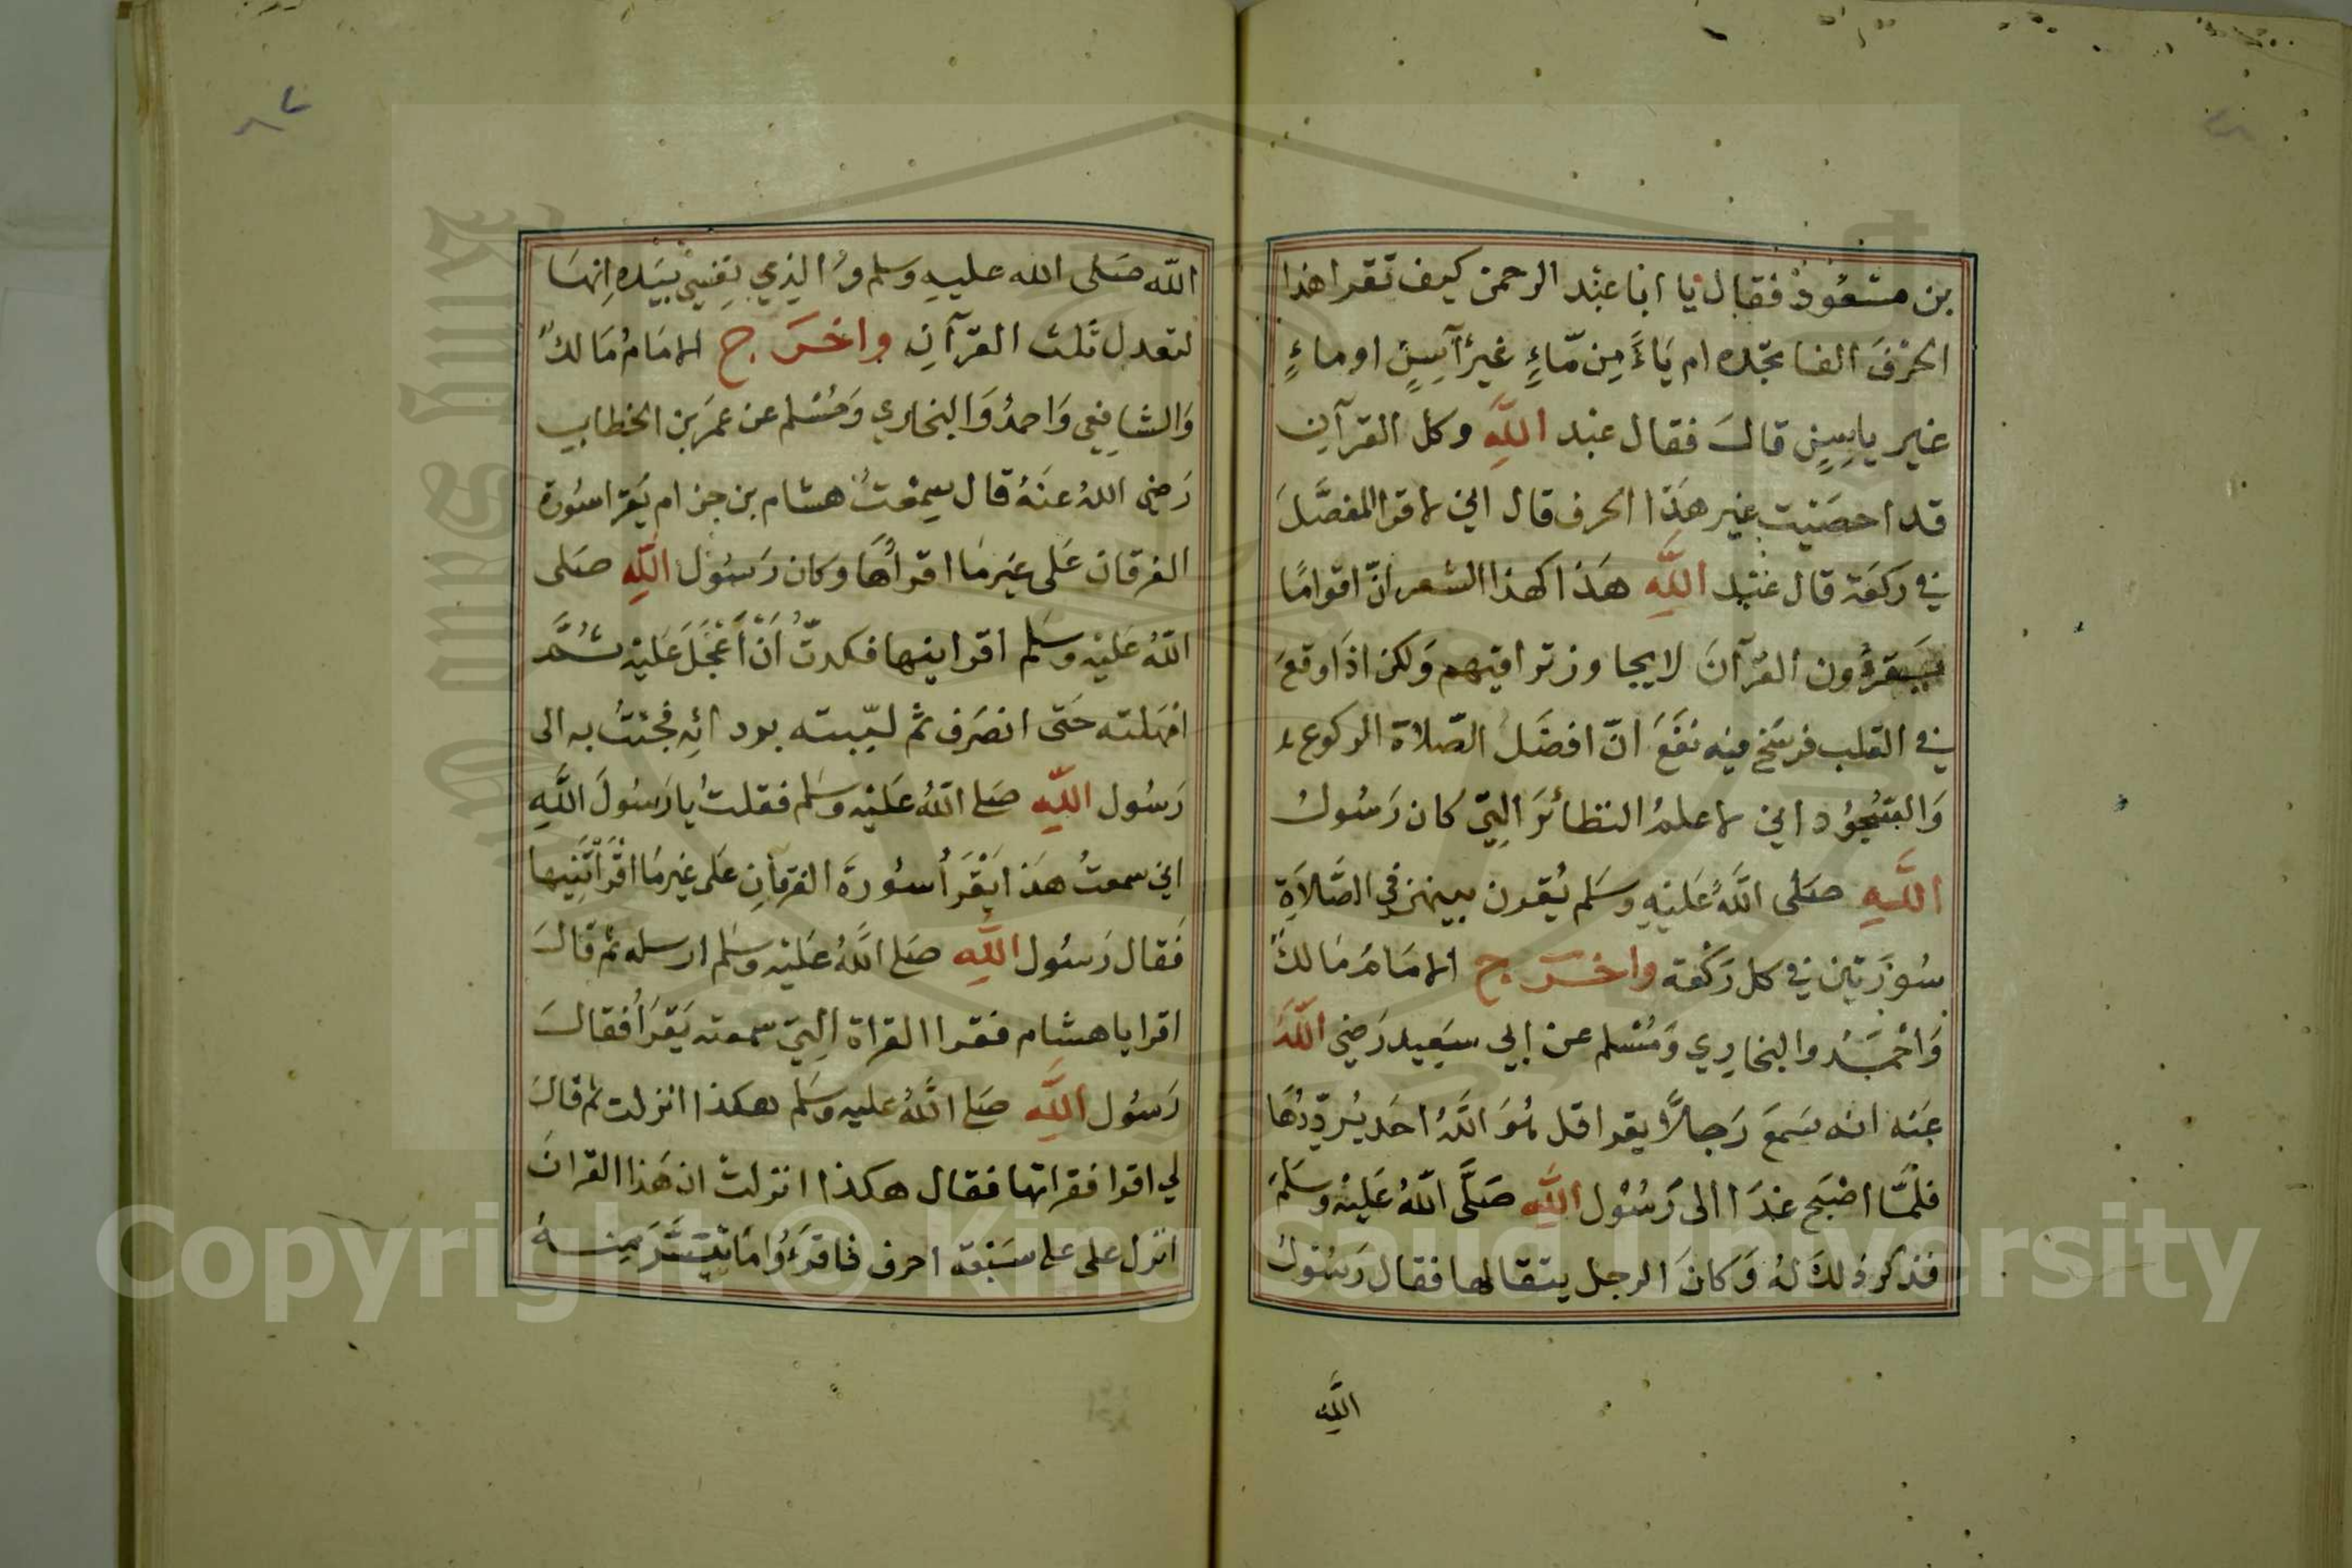 بن مسعود فقال يا ابا عبد الرحمن كيف تقرا هذا
الحرف الفا تجده ام ياء من ماء غير آسن او ماء
غير ياسن قال فقال عبد الله وكل القرآن
قد احصيت غير هذا الحرف قال اني لاقرا المفصل
في ركعة قال عبد الله هذا كهذا الشعر ان اقواما
يقرؤون القرآن لا يجاوز تراقيهم ولكن اذا وقع
في القلب فرسخ فيه نفع ان افضل الصلاة الركوع
والسجود اني لاعلم النظائر التي كان رسول
الله صلى الله عليه وسلم يقرن بينهن في الصلاة
سورتين في كل ركعة واخرج الامام مالك
واحمد والبخاري ومسلم عن ابي سعيد رضي الله
عنه انه سمع رجلا يقرا قل هو الله احد يرددها
فلما اصبح غدا الى رسول الله صلى الله عليه وسلم
فذكر ذلك له وكان الرجل يتقالها فقال رسول
الله
الله صلى الله عليه وسلم والذي نفسي بيده انها
لتعدل ثلث القرآن واخرج الامام مالك
والشافعي واحمد والبخاري ومسلم عن عمر بن الخطاب
رضي الله عنه قال سمعت هشام بن حزام يقرا سورة
الفرقان على غير ما اقراها وكان رسول الله صلى
الله عليه وسلم اقرانيها فكدت ان اعجل عليه ثم
امهلته حتى انصرف ثم لببته بردائه فجئت به الى
رسول الله صلى الله عليه وسلم فقلت يا رسول الله
اني سمعت هذا يقرأ سورة الفرقان على غير ما اقرأتنيها
فقال رسول الله صلى الله عليه وسلم ارسله ثم قال
اقرا يا هشام فقرا القراة التي سمعته يقرأ فقال
رسول الله صلى الله عليه وسلم هكذا انزلت ثم قال
لي اقرا فقراتها فقال هكذا انزلت ان هذا القران
انزل على على سبعة احرف فاقرءوا ما تيسر منه
Copyright © King Saud University